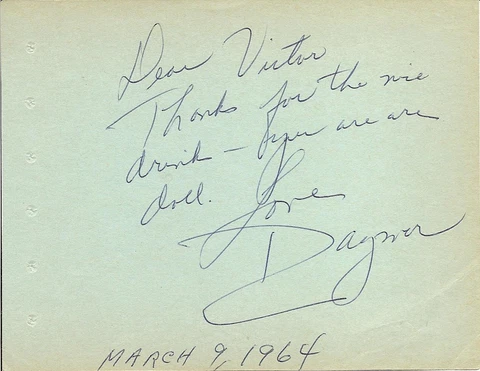 Dear Victor
Thanks for the nice
drink — you are are
doll. Love
Dagmar
MARCH 9, 1964